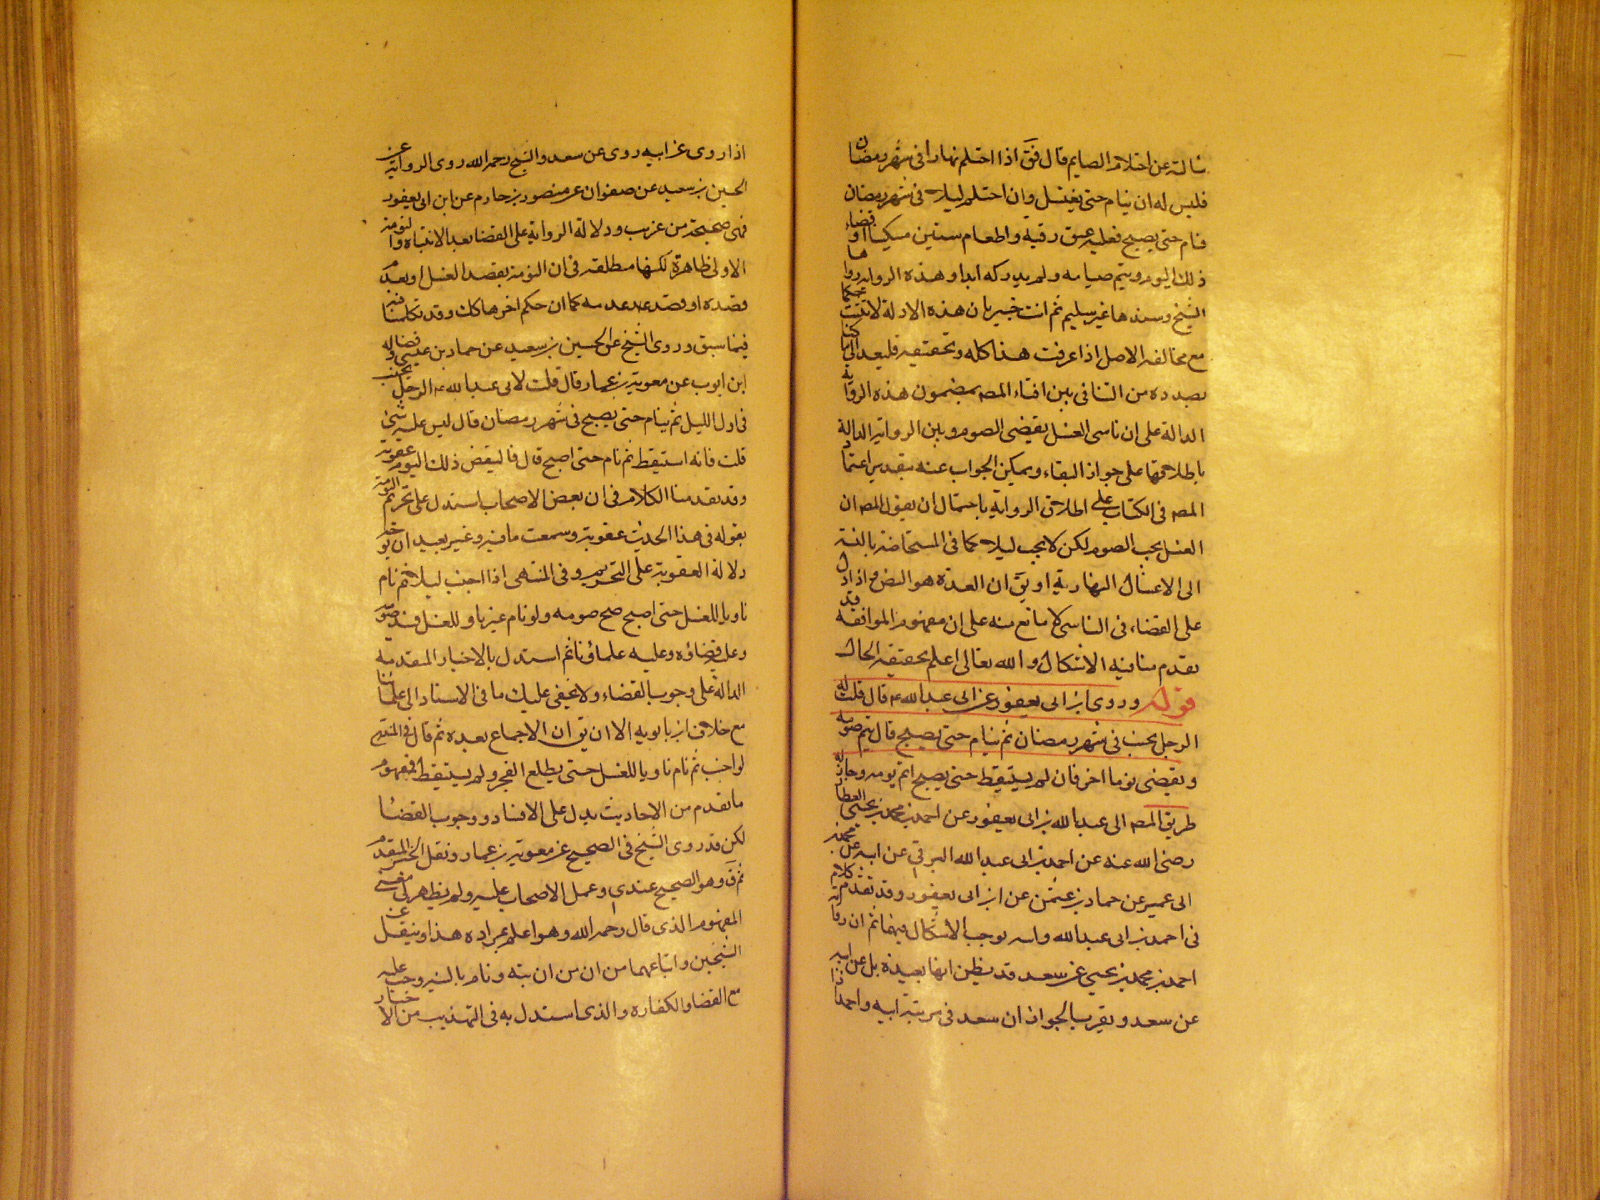 سالته عن احتلام الصايم قال فق اذا احتلم نهارا فى شهر رمضان
فليس له ان ينام حتى يغتسل وان احتلم ليلا فى شهر رمضان
فنام حتى يصبح فعليه عتق رقبة واطعام ستين مسكينا او قضاء
ذلك اليوم ويتم صيامه ولم يدركه ابدا وهذه الروايه رواها
الشيخ وسندها غير سليم ثم انت خبير بان هذه الادلة لا تثبت حكما
مع مخالفه الاصل اذا عرفت هذا كله وتحققته فليعد الى ما كنا
بصدده من التنافى بين افتاء المصه بمضمون هذه الرواية
الدالة على ان ناسى الغسل يقضى الصوم وبين الرواية الدالة
باطلاقها على جواز البقاء ويمكن الجواب عنه بتقدير اعتماد
المصه فى الكتاب على اطلاق الرواية باحتمال ان يقول المصه ان
الغسل يجب للصوم لكن لا يجب ليلا كما فى المستحاضة بالنسبة
الى الاغسال النهارية او يق ان العمدة هو النص واذا دل
على القضاء فى الناسى فلا مانع منه على ان مفهوم الموافقة قد
تقدم منا فيه الاشكال والله تعالى اعلم بحقيقة الحال
قوله وروى ابن ابى يعفور عن ابى عبد الله ع قال قلت له
الرجل يجنب فى شهر رمضان ثم ينام حتى يصبح قال يتم صومه
ويقضى يوما اخر فان لم يستيقظ حتى يصبح اتم يومه وجاز له
طريق المصه الى عبد الله بن ابى يعفور عن احمد بن محمد بن يحيى العطار
رضى الله عنه عن احمد بن ابى عبد الله البرقى عن ابيه عن محمد بن
ابى عمير عن حماد بن عثمن عن ابن ابى يعفور وقد تقدم كلام
فى احمد بن ابى عبد الله وابيه يوجب الاشكال فيهما ثم ان رواية
احمد بن محمد بن يحيى عن سعد قد يظن انها بعيدة بل عن ابيه
عن سعد ويقرب الجواز ان سعد فى مرتبة ابيه واحمد اذا
اذا روى عن ابيه روى عن سعد والشيخ رحمه الله روى الرواية عن
الحسين بن سعيد عن صفوان عن منصور بن حازم عن ابن ابى يعفور
فهى صحيحة من غير ريب ودلالة الرواية على القضا بعد الانتباه والنومة
الاولى ظاهرة لكنها مطلقه فى ان النومة بقصد الغسل او بعدم
قصده او قصد عدمه كما ان حكم اخرها كك وقد تكلمنا فيه
فيما سبق وروى الشيخ عن الحسين بن سعيد عن حماد بن عيسى وفضاله
ابن ايوب عن معوية بن عمار قال قلت لابى عبد الله ع الرجل يجنب
فى اول الليل ثم ينام حتى يصبح فى شهر رمضان قال ليس عليه شئ
قلت فانه استيقظ ثم نام حتى اصبح قال فاليقض ذلك اليوم عقوبة
وقد تقدم منا الكلام فى ان بعض الاصحاب استدل على تحريم النومة
بقوله فى هذا الحديث عقوبة وسمعت ما فيه وغير بعيد ان يؤخذ
دلالة العقوبة على التحريم وفى المنتهى اذا اجنب ليلا ثم نام
ناويا للغسل حتى اصبح صح صومه ولو نام غير ناو للغسل فسد صومه
وعليه قضاؤه وعليه علماؤنا ثم استدل بالاخبار المتقدمة
الدالة على وجوب القضاء ولا يخفى عليك ما فى الاسناد الى علمائنا
مع خلاف ابن بابويه الا ان يق ان الاجماع بعده ثم قال فى المنتهى
لو اجنب ثم نام ناويا للغسل حتى يطلع الفجر ولم يستيقظ فمفهوم
ما تقدم من الاحاديث يدل على الافساد ووجوب القضا
لكن قد روى الشيخ فى الصحيح عن معوية بن عمار ونقل الخبر المتقدم
ثم ق وهو الصحيح عندى وعمل الاصحاب عليه ولم يظهر لى معنى
المفهوم الذى قال رحمه الله وهو اعلم بمراده هذا وينقل عن
الشيخين واتباعهما من ان من انتبه ونام بالنية وجب عليه
مع القضا والكفاره والذى استدل به فى التهذيب من الاخبار